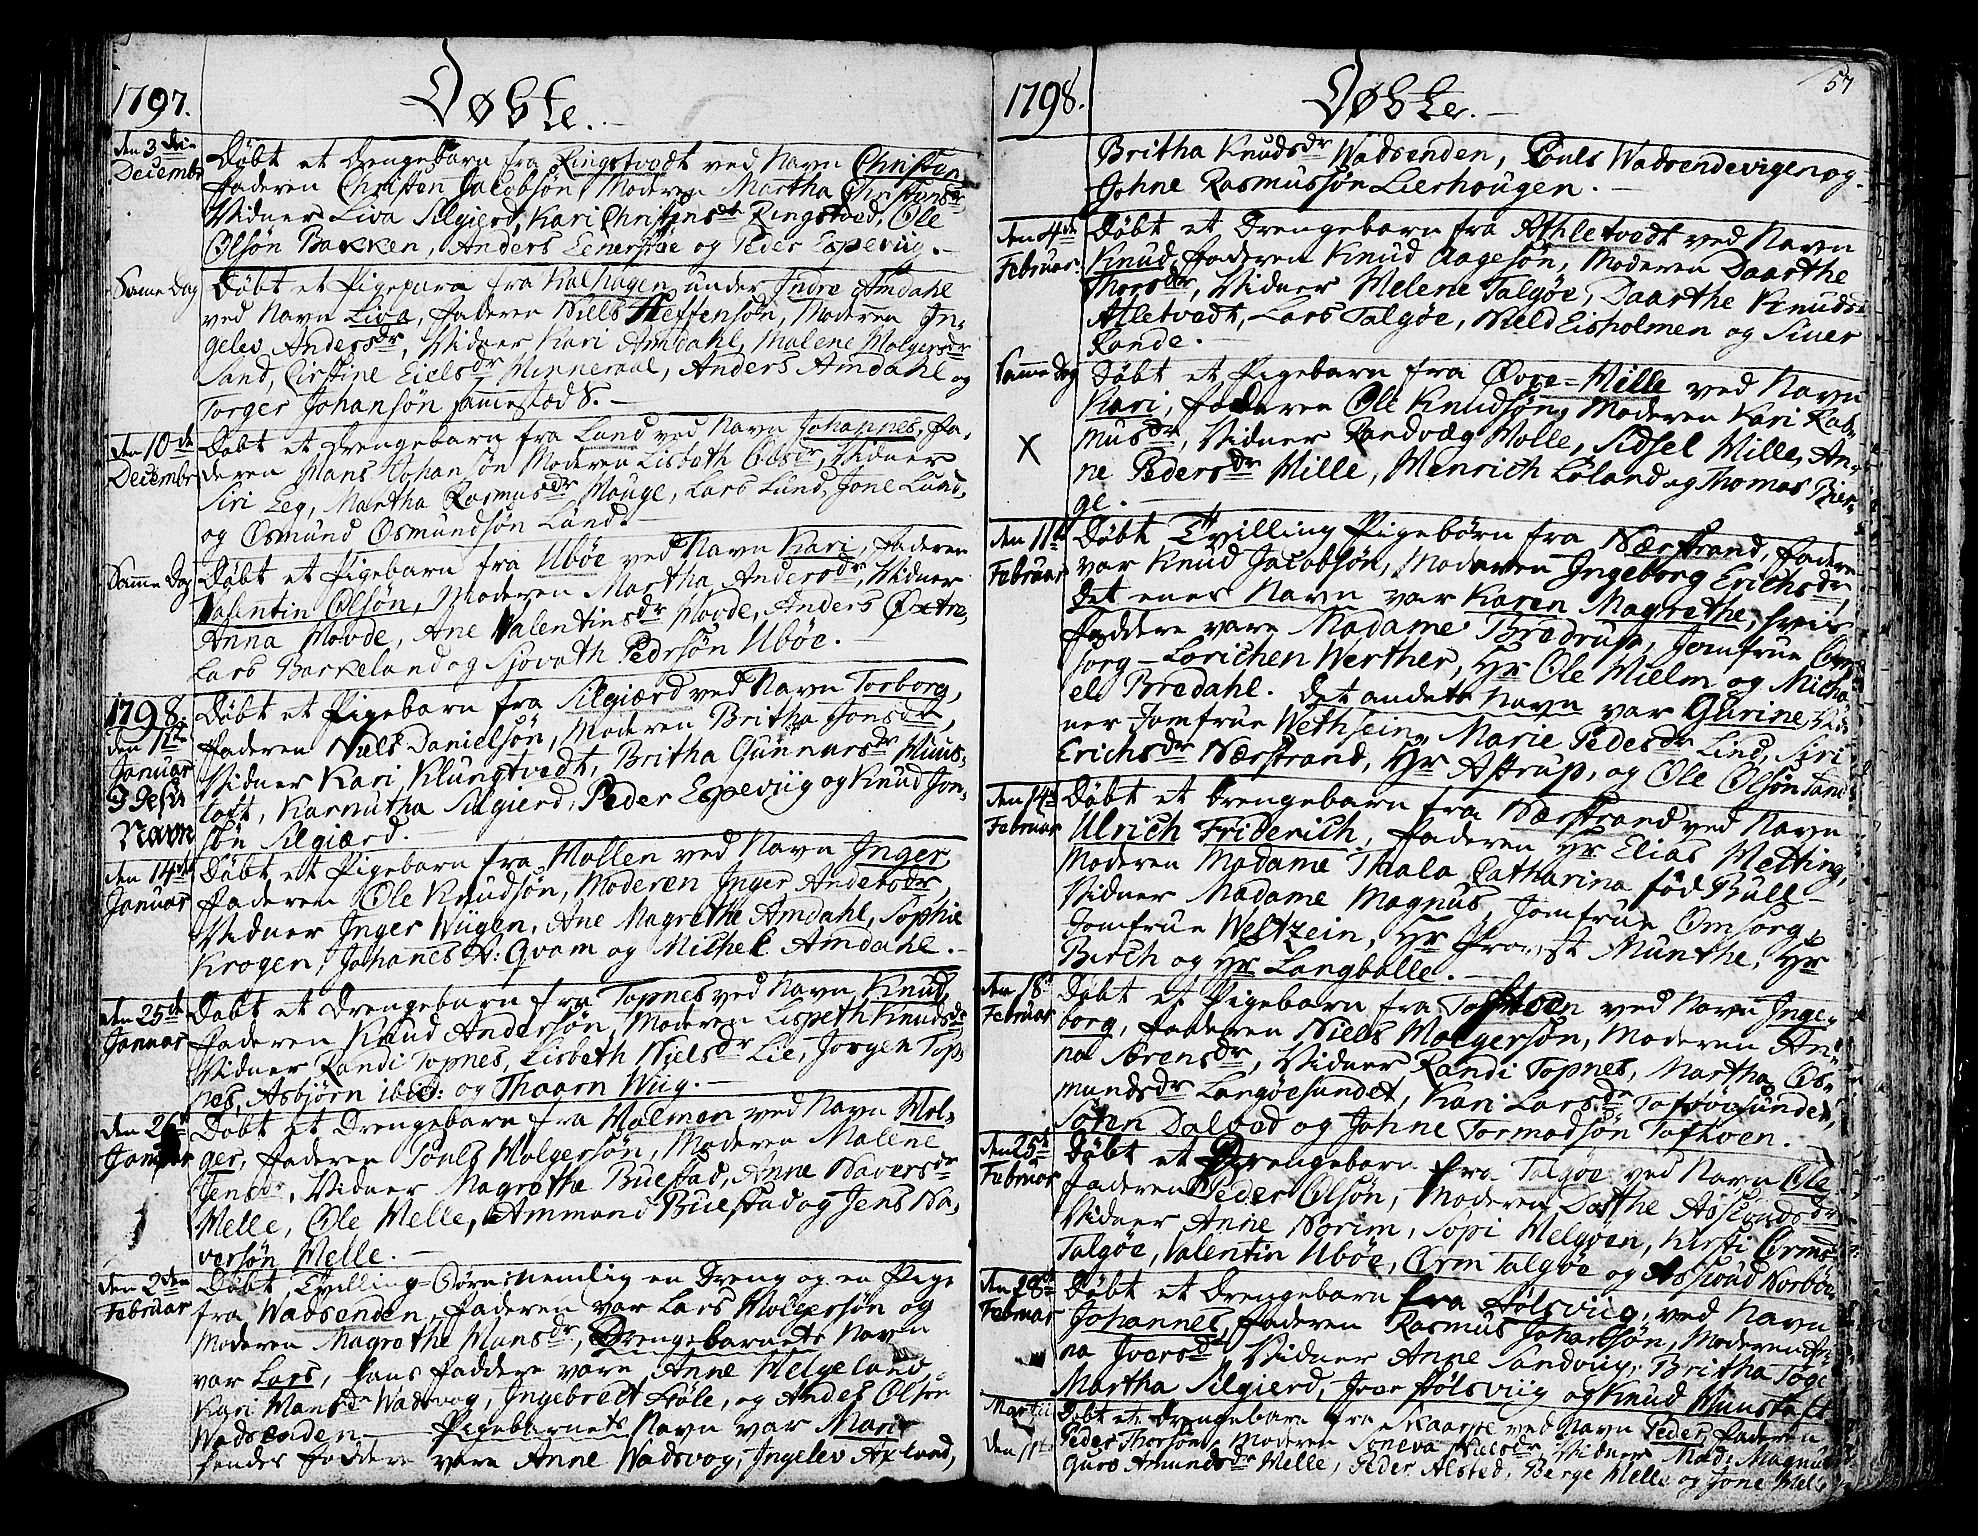 1797. Døbte.
den 3die Decembr Døbt et Drengebarn fra Ringstvedt ved Navn Christen
Faderen Christen Jacobsøn, Moderen Martha Christensdr
Vidner Liva Silgierd, Kari Christensdr Ringstved, Ole
Olsøn Bakken, Anders Lenersøe og Peder Espeviig.
Same Dag Døbt et Pigebarn fra Kalhagen under Indre Amdahl
ved Navn Liva, Faderen Niels Steffensøn, Moderen In-
gelev Andersdr, Vidner Kari Amdahl, Malene Holgersdr
Sand, Cirstine Eielsdr Hinneraal, Anders Amdahl og
Torger Johansøn sammestæds.
den 10de Decembr Døbt et Drengebarn fra Lund ved Navn Johannes, Fa-
deren Hans Johansøn Moderen Lisbeth Olsdr, Vidner
Siri Leg, Martha Rasmusdr Houge, Lars Lund, Jone Lund,
og Osmund Osmundsøn Lund.
Same Dag Døbt et Pigebarn fra Ubøe ved Navn Kari, Faderen
Valentin Olsøn, Moderen Martha Andersdr, Vidner
Anna Hovde, Ane Valentinsdr Hovde, Anders Østre,
Lars Barkeland og Sjovath Pedrsøn Ubøe.
1798. den 1ste Januar Døbt et Pigebarn fra Silgiærd ved Navn Torborg,
Faderen Niels Danielsøn, Moderen Britha Jonsdr,
Vidner Kari Klungtvedt, Britha Gunnarsdr Huus-
toft, Karnutha Silgierd, Peder Espeviig og Knud Jon-
Navn søn Silgiærd.
den 14de Januar Døbt et Pigebarn fra Hollen ved Navn Inger
Faderen Ole Knudsøn, Moderen Inger Andersdr,
Vidner Inger Wiigen, Ane Magrethe Amdahl, Sophie
Krogen, Johanes A: Qvam og Michel Amdahl.
den 25de Januar Døbt et Drengebarn fra Topnes ved Navn Knud,
Faderen Knud Andersøn, Moderen Lispeth Knudsdr
Vidner Randi Topnes, Lisbeth Nielsdr Lie, Jørgen Top-
nes, Asbjørn ibid: og Thaarn Wiig.
den 26de Januar Døbt et Drengebarn fra Holmen ved Navn Hol-
ger, Faderen Pouls Holgersøn, Moderen Malene
Jensdr, Vidner Magrethe Buestad, Anne Haversdr
Melle, Ole Melle, Ammund Buestad og Jens Ha-
versøn Melle.
den 2den Februar Døbt Tvilling Børn nemlig en Dreng og en Pige
fra Wadsenden, Faderen var Lars Holgersøn og
Moderen Magrethe Hansdr, Drengebarnets Navn
var Lars, hans Faddere vare Anne Helgeland,
Kari Hansdr Wadsvog, Ingebredt Høle, og Andes Olsøn
Wadsenden Pigebarnets Navn var Mari
hendes Faddere vare Anne Wadsvog, Ingelev Axland,
1798. Døbte. 57
Britha Knudsdr Wadsenden, Pouls Wadsendevigen og
Johne Rasmussøn Lierhougen.
den 4de Februar: Døbt et Drengebarn fra Athletvedt ved Navn
Knud, Faderen Knud Aagesøn, Moderen Daarthe
Thorsdr, Vidner Melene Talgøe, Daarthe Knuds-
Atletvedt, Lars Talgøe, Nield Eisholmen og Siver
Rande.
Same Dag Døbt et Pigebarn fra Øvre=Hille ved Navn
Kari, Faderen Ole Knudsøn, Moderen Kari Ras-
X musdr, Vidner Randvæg Holle, Sidsel Hille, An-
ne Pedersdr Hille, Henrich Løland og Thomas Bier-
ge.
den 11te Februar Døbt Tvilling Pigebørn fra Nærstrand, Fader
var Knud Jacobsøn, Moderen Ingeborg Erichsdr,
det enes Navn var Karen Magrethe, hvis
Faddere vare Madame Brødrup, Jomfrue Om-
sorg Lorichen Werther, Hr Ole Hielm og Micha-
el Bredahl. det andets Navn var Gurine, Vid-
ner Jomfrue Wethsein, Marie Pedesdr Lind, Siri
Erichsdr Nærstrand, Hr Astrup, og Ole Olsøn Sand
den 14de Februar Døbt et Drengebarn fra Nærstrand ved Navn
Ulrich Friderich, Faderen Hr Elias Metting,
Moderen Madame Thala Catharina fød Bull
Vidner Madame Magnus, Jomfrue Omsorg,
Jomfrue Weltzein, Hr Provst Munthe, Hr
Birch og Hr Langballe.
den 18de Februar Døbt et Pigebarn fra Toftøen ved Navn Inge-
borg, Faderen Niels Holgersøn, Moderen An-
na Sørensdr, Vidner Randi Topnes, Martha Os-
mundsdr Langøesundet, Kari Larsdr Toftøesundet,
Søren Dalvad og Johne Tormodsøn Toftøen.
den 25de Februar Døbt et Drengebarn fra Talgøe ved Navn Ole
Faderen Peder Olsøn, Moderen Darthe Aslouds dr
Vidner Anne Norim, Sopi Helgøen, Kirsti Ormsdr
Talgøe, Valentin Ubøe, Orm Talgøe og Asloud Norbøe
den 28de Februar Døbt et Drengebarn fra Hølsviig, ved Navn
Johannes, Faderen Rasmus Johansøn, Moderen An-
na Iversdr Vidner Anne Sandviig, Britha Tøge
Martha Silgierd, Iver Hølsviig og Knud Huustoft
Martii den 11te Døbt et Drengebarn fra Skaarpe ved Navn Peder, Faderen
Peder Thorsøn, Moderen Soneva Nilsdr, Vidner Mad: Magnus
Guro Amundsdr Helle, Peder Alsted, Børge Helle og Jone Helle